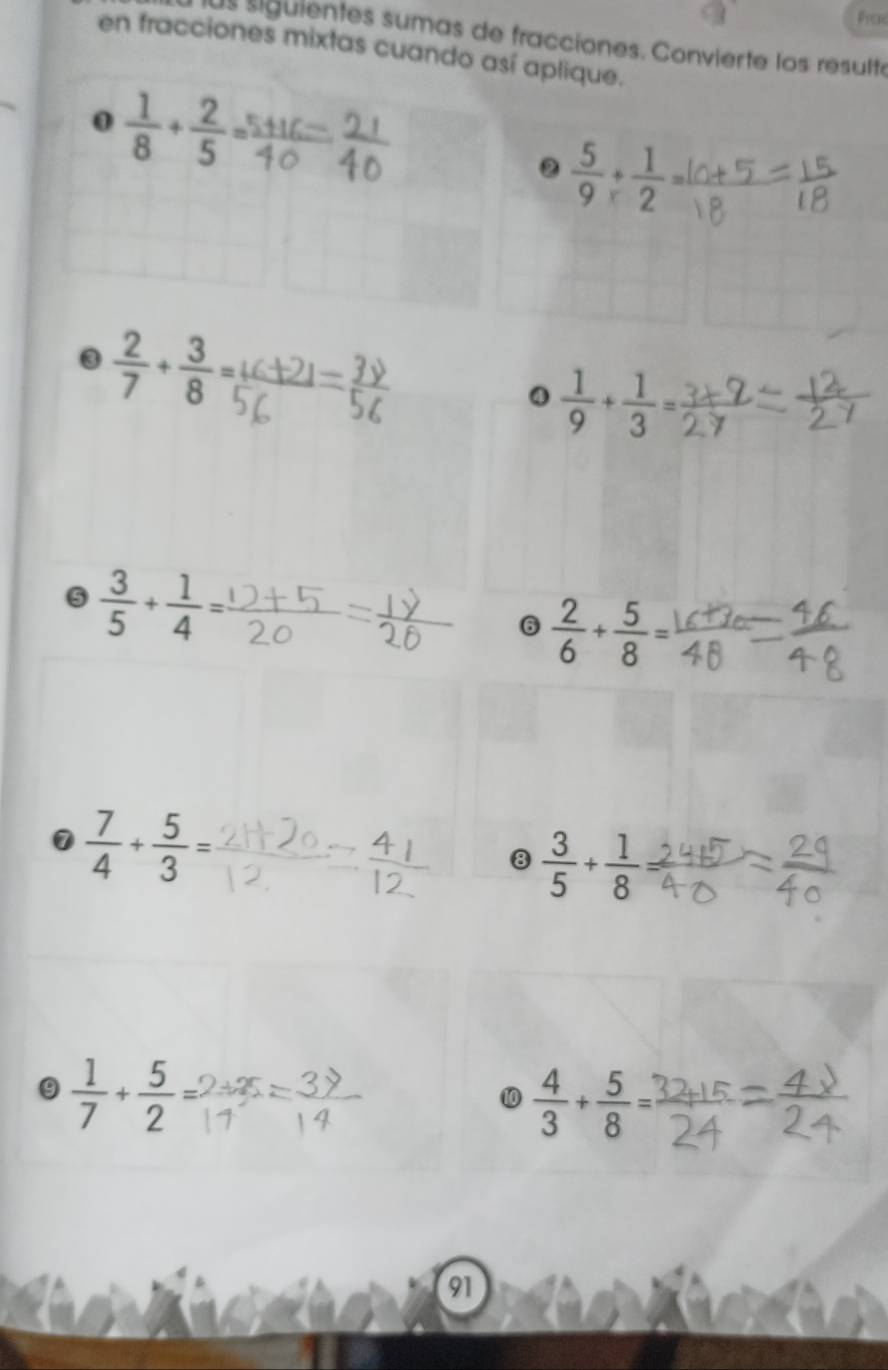 las siguientes sumas de fracciones. Convierte los result
en fracciones mixtas cuando así aplique.
Frac
❶ 1/8 + 2/5 = 5+16/40 = 21/40
❷ 5/9 + 1/2 = 10+5/18 = 15/18
❸ 2/7 + 3/8 = 16+21/56 = 37/56
❹ 1/9 + 1/3 = 3+9/27 = 12/27
❺ 3/5 + 1/4 = 12+5/20 = 17/20
❻ 2/6 + 5/8 = 16+30/48 = 46/48
❼ 7/4 + 5/3 = 21+20/12 = 41/12
❽ 3/5 + 1/8 = 24+5/40 = 29/40
❾ 1/7 + 5/2 = 2+35/14 = 37/14
❿ 4/3 + 5/8 = 32+15/24 = 47/24
91